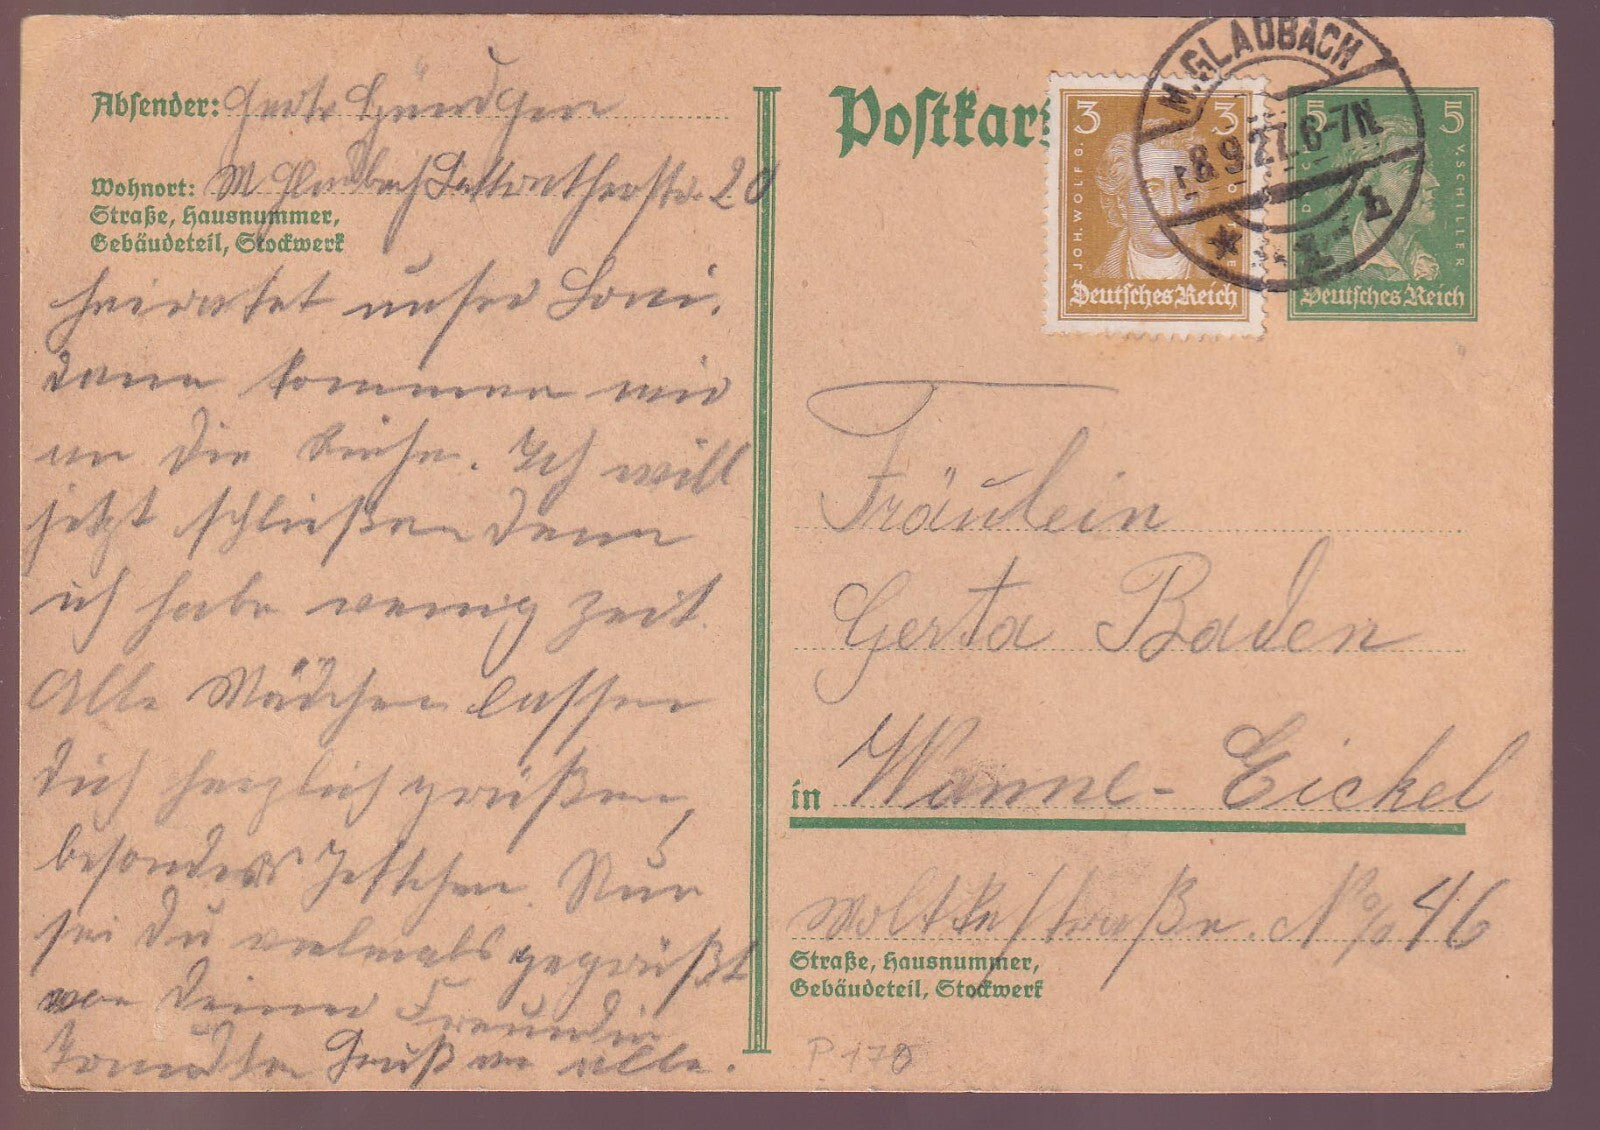 Absender: Gerta Gündgen
Wohnort: M Gladbach Lutterotherstr. 20
Straße, Hausnummer,
Gebäudeteil, Stockwerk
heiratet unser Loni.
dann kommen wir
an die Reihe. Ich will
jetzt schließen denn
ich habe wenig Zeit.
Alle Mädchen lassen
dich herzlich grüßen,
besonders Jettchen. Nun
sei du vielmals gegrüßt
von deiner Freundin
Gruß an alle.
Postkart
3 3
JOH. WOLFG.
Deutsches Reich
M.GLADBACH
8.9.27. 6-7N.
5 5
V. SCHILLER
Deutsches Reich
Fräulein
Gerta Baden
in Wanne-Eickel
Moltkestraße. No 46
Straße, Hausnummer,
Gebäudeteil, Stockwerk
P 170